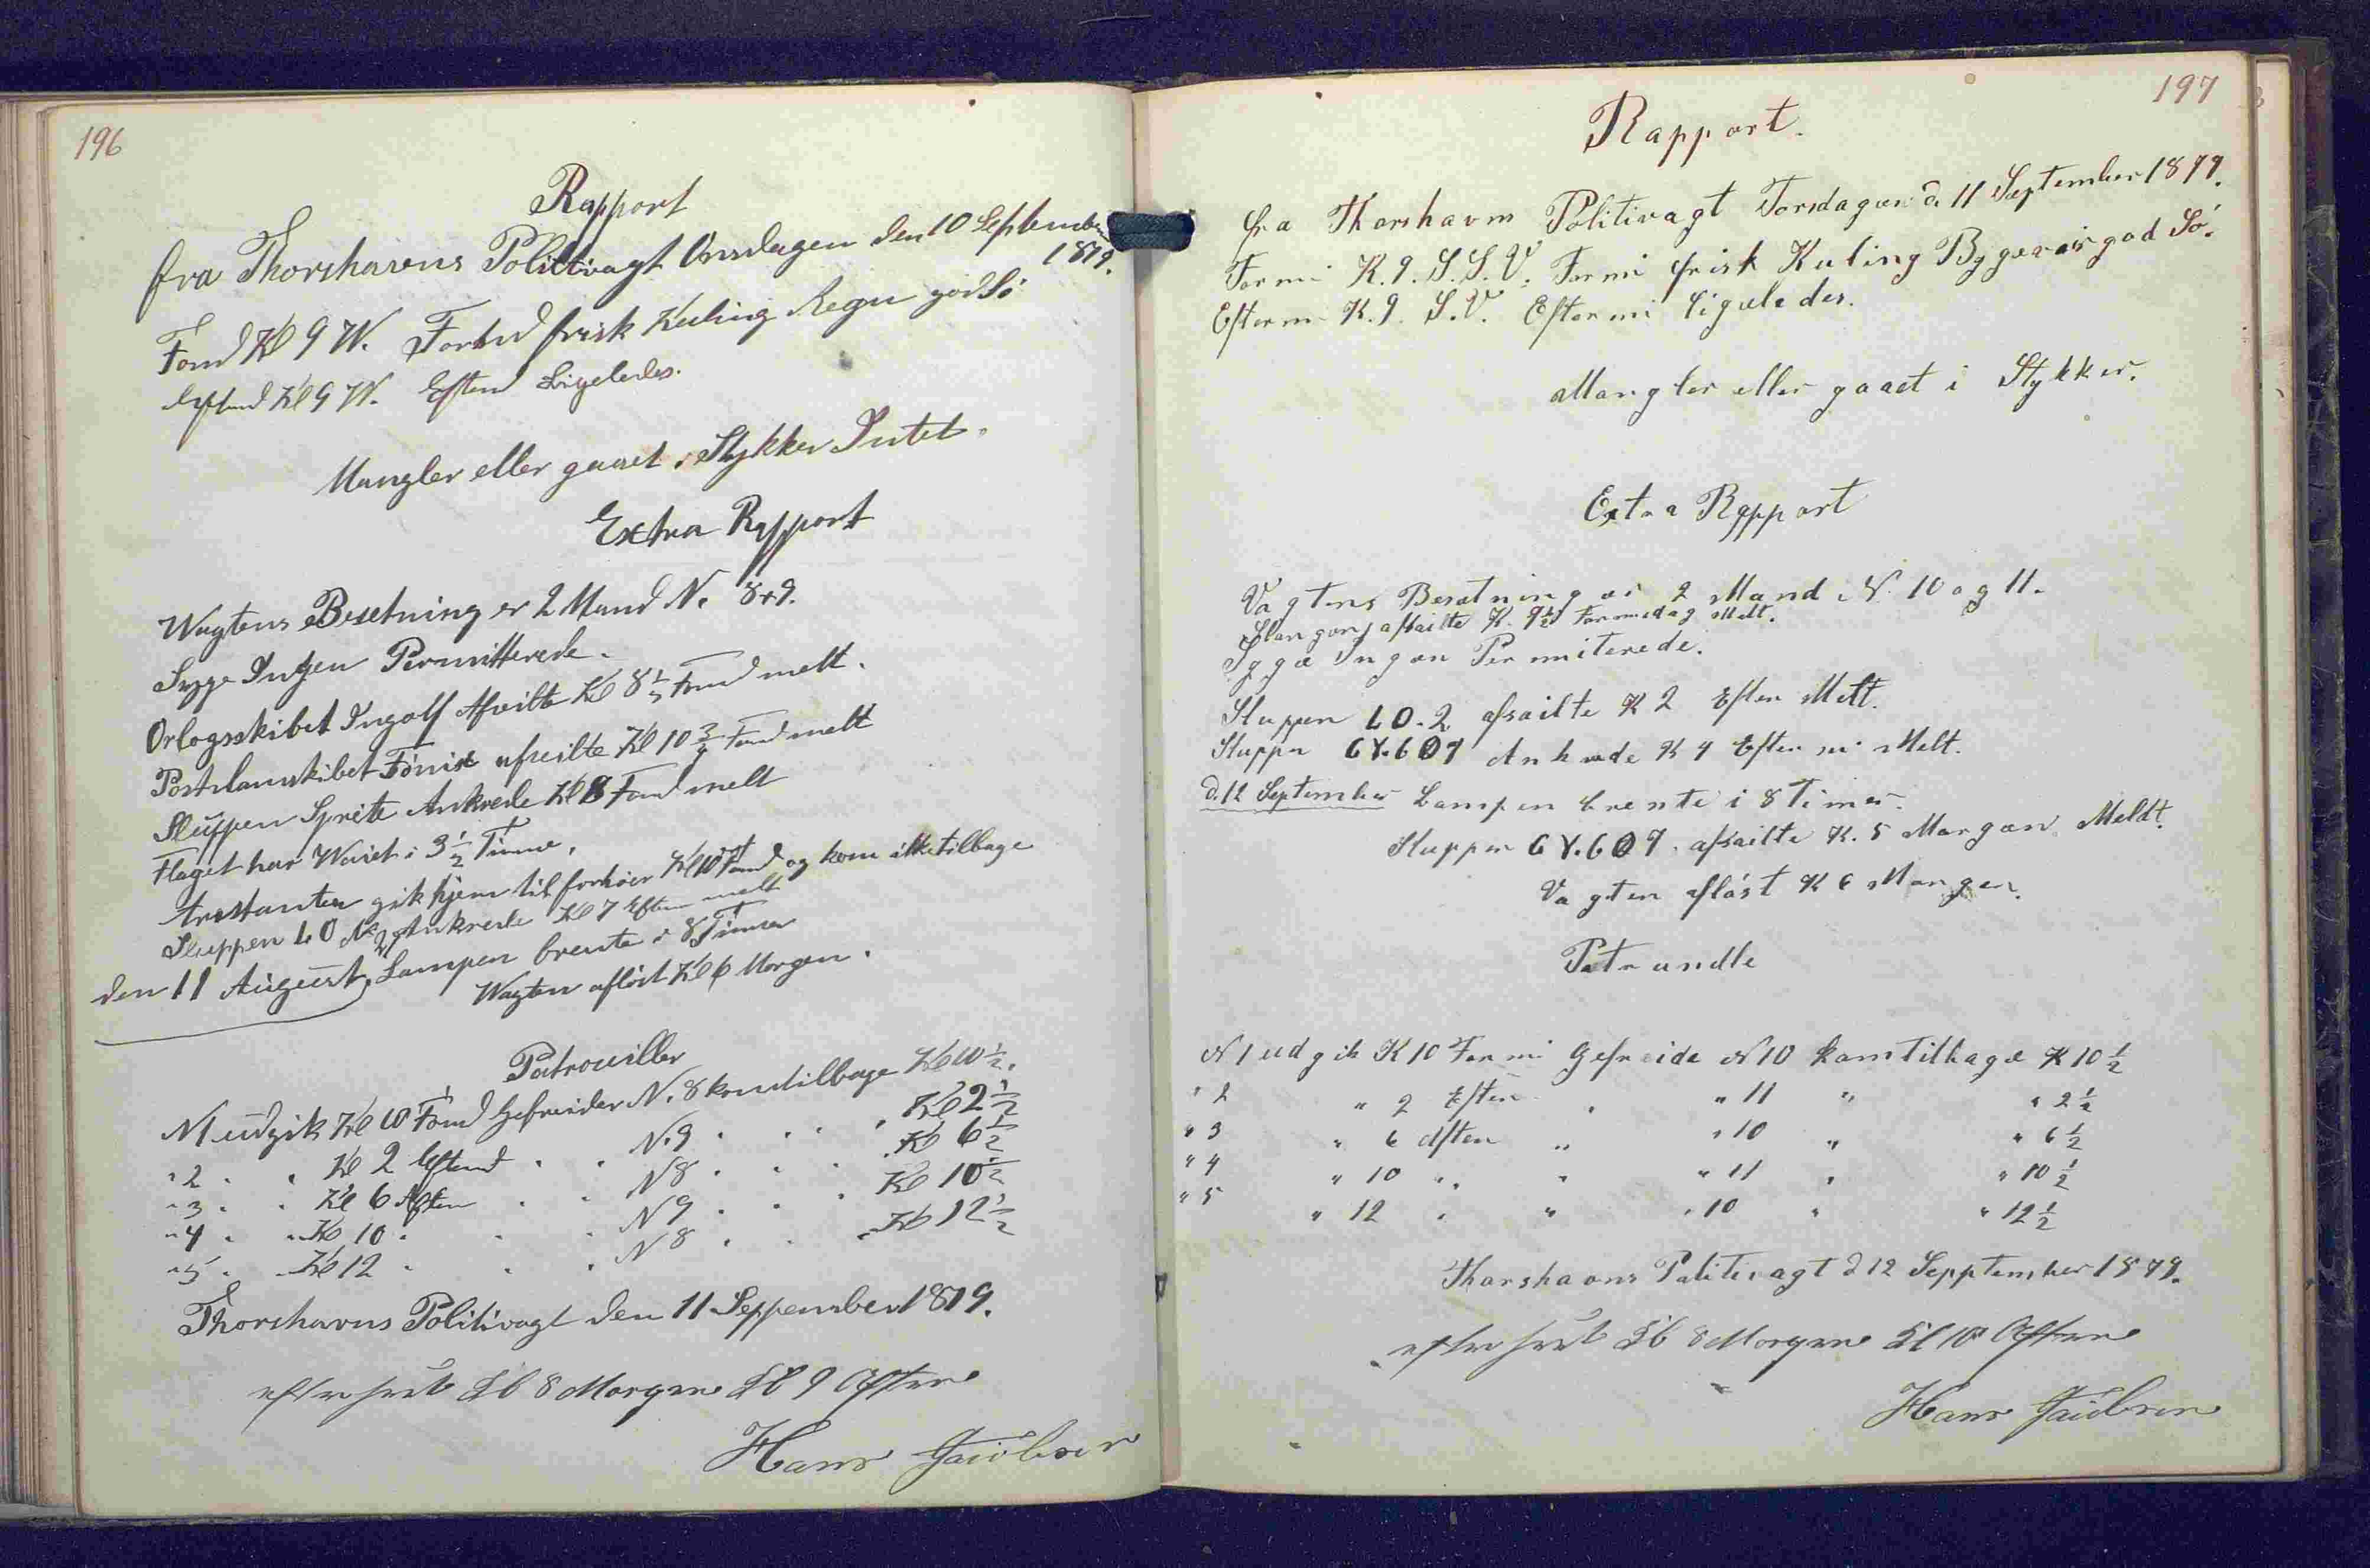 196
Rapport
fra Thorshavns Politivagt Onsdagen den 10 September
1879.
Formd Kl 9 W. Formd frisk Kuling Regn god Sö
Eftmd Kl 9 W. Eftmd Ligeledes.
Mangler eller gaaet i Stykker Intet.
Extra Rapport
Wagtens Besetning er 2 Mand N. 8 & 9.
Syge Ingen Permitterede.
Orlogsskibet Ingolf Afseilte Kl 8 1/2 Fmd melt.
Postdamskibet Fönix afseilte Kl 10 3/4 Fmd melt
Sluppen Sprite Ankrede Kl 8 Fmd melt
Flaget har Wæiet i 3 1/2 Timme.
Arrstanten gik hjem til forhöer Kl 10 Fmd og kom ikke tilbage
Sluppen LO No 2 Ankrede Kl 7 Eftm melt
den 11 August, Lampen brente i 8 Timer
Wagten aflöst Kl 6 Morgen.
Patrouiller
N 1 udgik Kl 10 Formd Gefreider N. 8 kom tilbage Kl 10 1/2.
" 2 . " Kl 2 Eftmd . . N. 9 . . . . Kl 2 1/2
" 3 . " Kl 6 Aften . . N 8 . . . Kl 6 1/2
" 4 . " Kl 10 . . . N 9 . . . Kl 10 1/2
" 5 . " Kl 12 . . . N 8 . . . Kl 12 1/2
Thorshavns Politivagt den 11 Seppember 1879.
efterseet Kl 8 Morgen Kl 9 Aften
Hans Jacobsen
197
Rapport.
fra Thorshavns Politivagt Torsdagen d. 11 September 1879.
Formi K. 9. S.S.V. Formi frisk Kuling Bygeveir god Sö.
Efterm K. 9. S.V. Eftermi ligeledes.
Mangler eller gaaet i Stykker.
Extra Rapport
Vagtens Besetning er 2 Mand N. 10 og 11.
afsailte K. 9 1/2 Formedag Melt.
Syge Ingen Permiterede.
Sluppen LO. 2 afsailte K 2 Eften Melt.
Sluppn GY. 607 Ankrede K 4 Eften mi Melt.
d. 12 September Lampen brente i 8 Timer.
Sluppen GY. 607. afsailte K. 5 Morgen Meldt.
Vagten aflöst K 6 Morgen.
Patrundle
N 1 udgik K 10 Formi Gefreide N 10 kom Tilbage K 10 1/2
" 2 " 2 Eften . " 11 " " 2 1/2
" 3 " 6 Aften " " 10 " " 6 1/2
" 4 " 10 " " " 11 " " 10 1/2
" 5 " 12 " " " 10 " " 12 1/2
Thorshavns Politivagt d 12 Sepptember 1879.
efterseet Kl 8 Morgen Kl 10 Aften
Hans Jacobsen